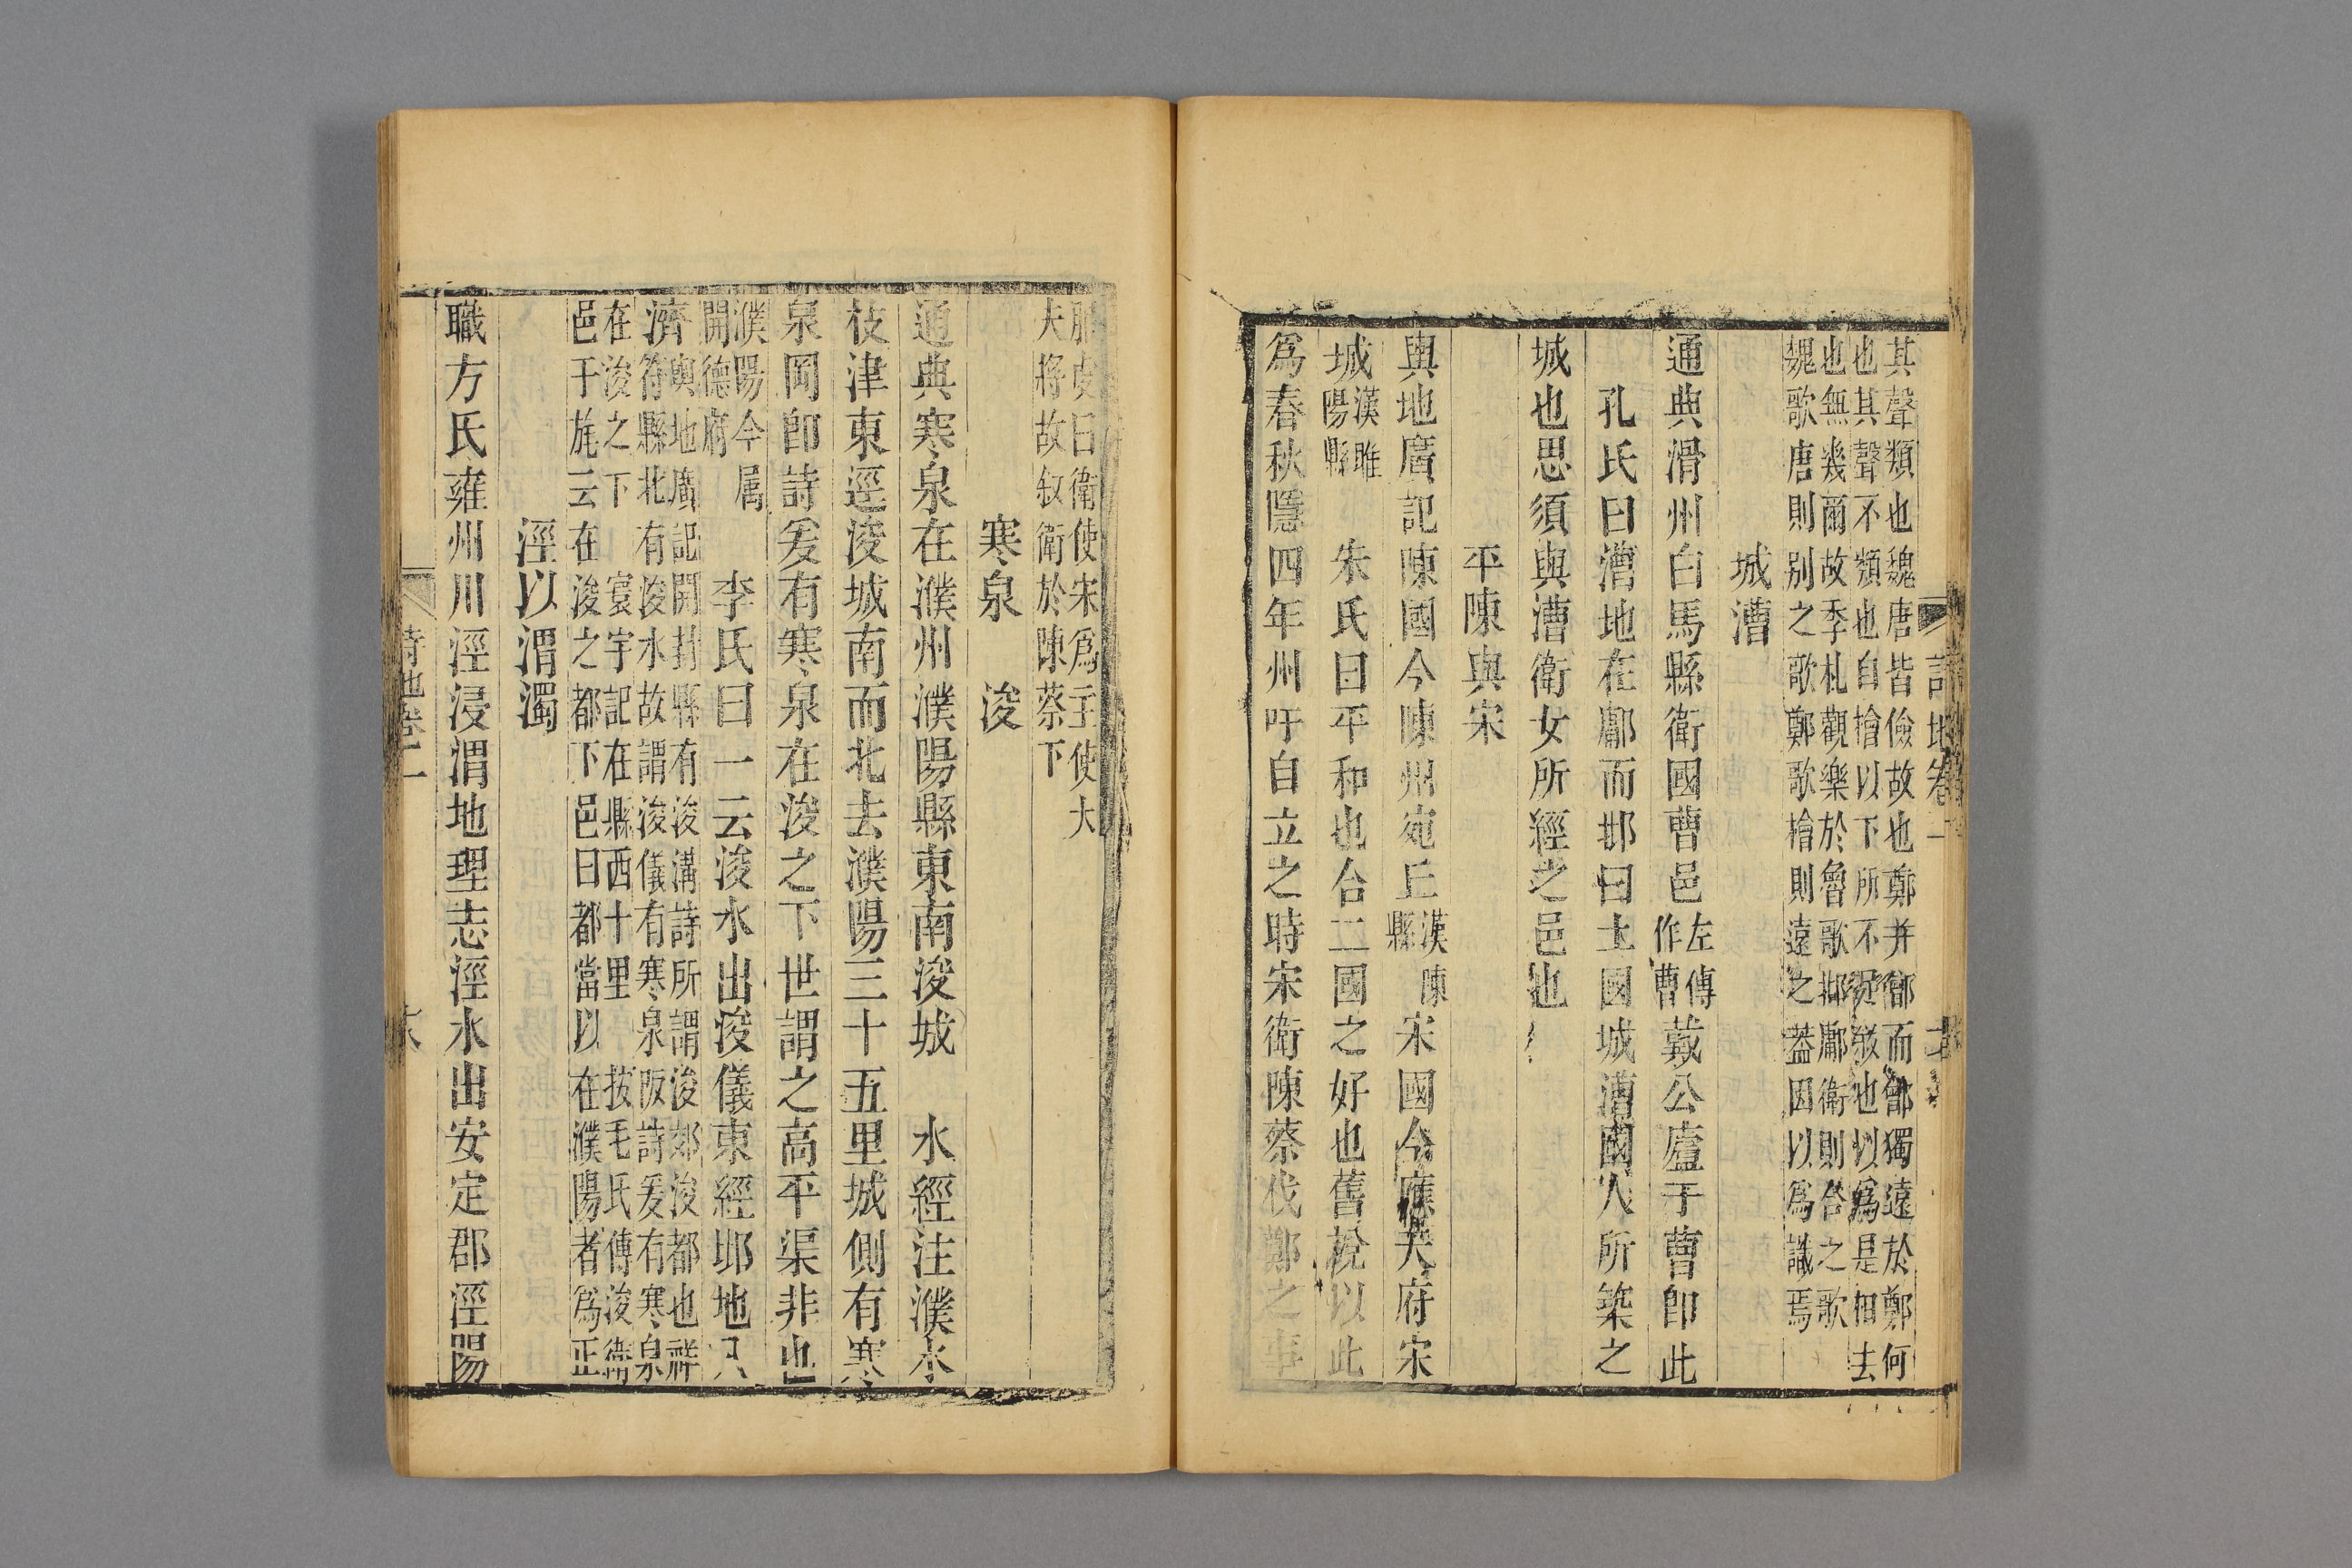 其聲類也魏唐皆儉故也鄭并鄶而鄶獨遠於鄭何
也其聲不類也自檜以下所不足敘也以爲是相去
也無幾爾故季札觀樂於魯歌邶鄘衛則合之歌
魏歌唐則别之歌鄭歌檜則遠之蓋因以爲識焉
城漕
通典滑州白馬縣衛國曹邑左傳作曹戴公廬于曹即此
孔氏曰漕地在鄘而邶曰土國城漕國人所築之
城也思須與漕衛女所經之邑也
平陳與宋
輿地廣記陳國今陳州宛丘漢陳縣宋國今應天府宋
城漢睢陽縣 朱氏曰平和也合二國之好也舊說以此
爲春秋隱四年州吁自立之時宋衛陳蔡伐鄭之事
服虔曰衛使宋爲主使大
夫將故敘衛於陳蔡下
寒泉 浚
通典寒泉在濮州濮陽縣東南浚城 水經注濮水
枝津東逕浚城南而北去濮陽三十五里城側有寒
泉岡即詩爰有寒泉在浚之下世謂之高平渠非也
濮陽今屬開德府 李氏曰一云浚水出浚儀東經邶地入
濟輿地廣記開封縣有浚溝詩所謂浚郊浚都也祥
符縣北有浚水故謂浚儀有寒泉阪詩爰有寒泉
在浚之下 寰宇記在縣西十里 按毛氏傳浚衛
邑于旄云在浚之都下邑曰都當以在濮陽者爲正
涇以渭濁
職方氏雍州川涇浸渭地理志涇水出安定郡涇陽